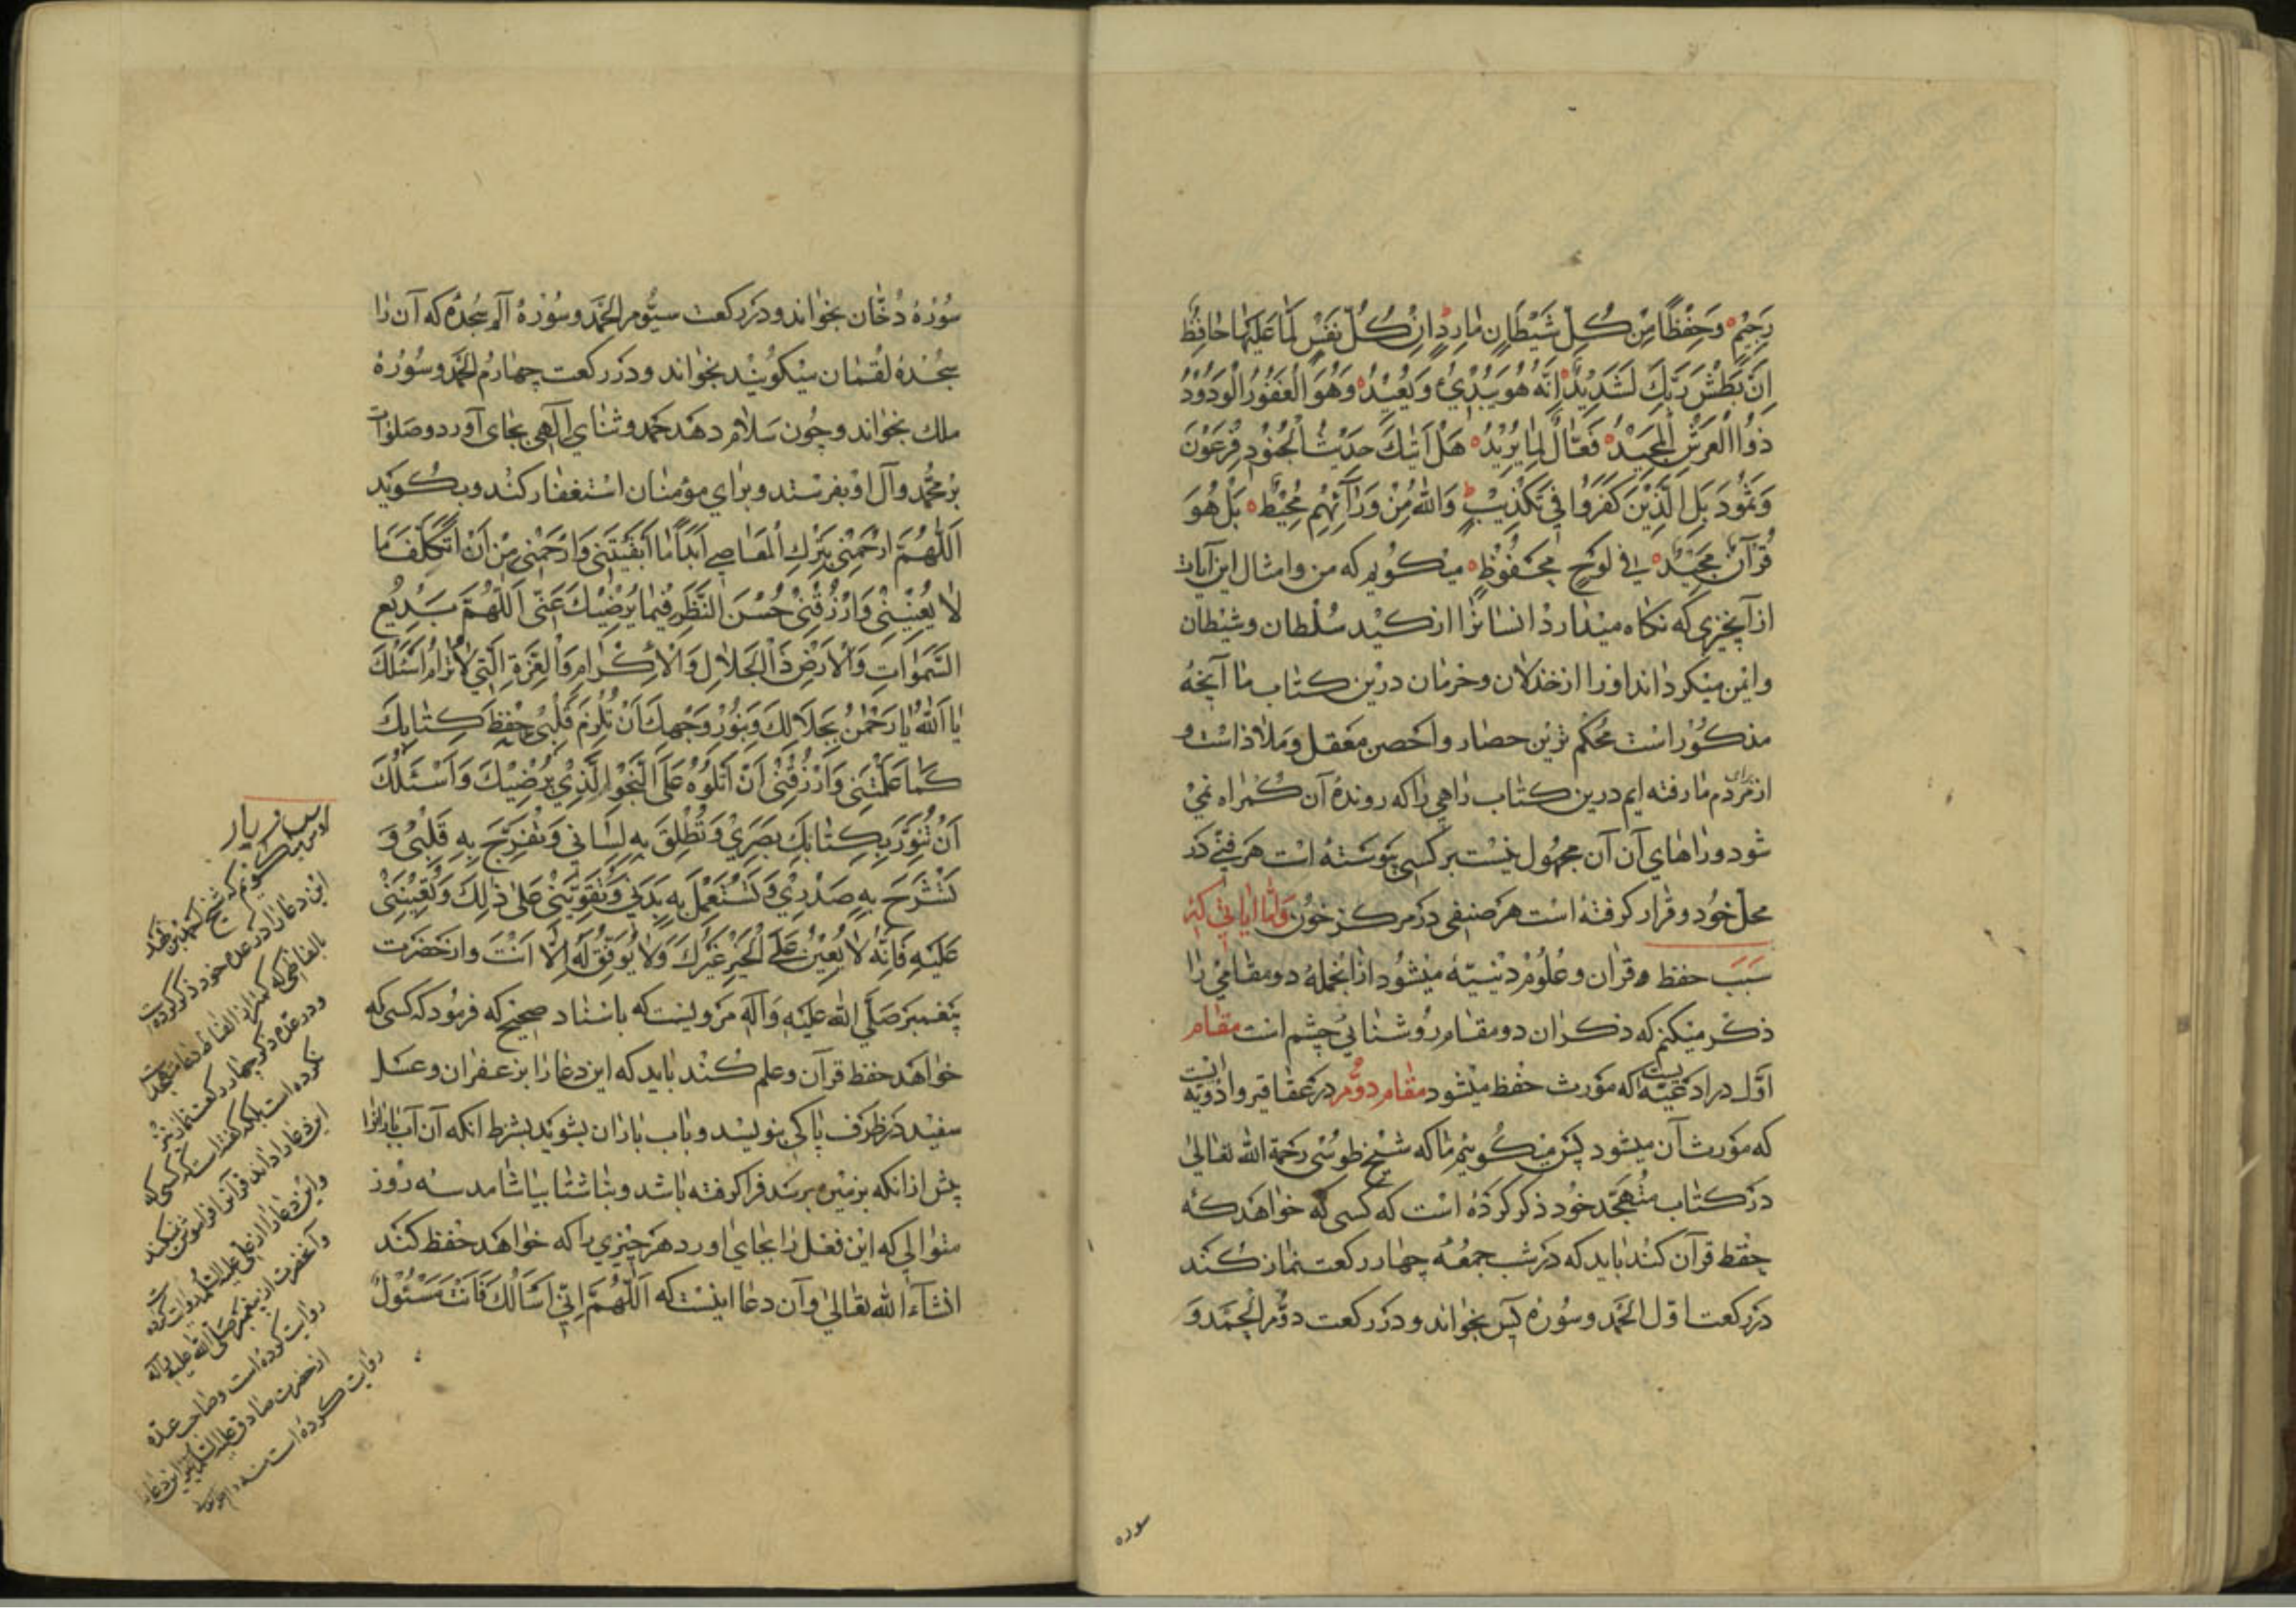 رَجِيْمٍ وَحِفْظًا مِنْ كُلِّ شَيْطَانٍ مَارِدٍ اِنْ كُلُّ نَفْسٍ لَمَّا عَلَيْهَا حَافِظٌ
اِنَّ بَطْشَ رَبِّكَ لَشَدِيْدٌ اِنَّهُ هُوَ يُبْدِئُ وَيُعِيْدُ وَهُوَ الْغَفُوْرُ الْوَدُوْدُ
ذُوا الْعَرْشِ الْمَجِيْدُ فَعَّالٌ لِمَا يُرِيْدُ هَلْ اَتٰيكَ حَدِيْثُ الْجُنُوْدِ فِرْعَوْنَ
وَثَمُوْدَ بَلِ الَّذِيْنَ كَفَرُوْا فِي تَكْذِيْبٍ وَاللّٰهُ مِنْ وَرَآئِهِمْ مُحِيْطٌ بَلْ هُوَ
قُرْآنٌ مَجِيْدٌ فِي لَوْحٍ مَحْفُوْظٍ ميكويم كه من وامثال اين آيات
از آنچيزى كه نكاه ميدارد انسانرا از كيد سلطان وشيطان
وايمن ميكرداند اورا از خذلان وحرمان درين كتاب ما آنچه
مذكور است محكم ترين حصار واحصن معقل وملاذ است و
از براى مردم ما رفته ايم درين كتاب راهى را كه روندهٔ آن كمراه نمى
شود وراهاى آن آن مجهول نيست بر كسى پيوسته است هر فنى در
محل خود وقرار كرفته است هر صنفى در مركز خون واما اياتى كه
سبب حفظ وقران وعلوم دينيّه ميشود از انجمله دو مقامى را
ذكر ميكنم كه ذكران دو مقام روشنايى چشم است مقام
اوّل در ادعيه ايست كه مورث حفظ ميشود مقام دوّم در عقاقير وادويه ايست
كه مورث آن ميشود پس ميكوييم ما كه شيخ طوسى رحمة الله تعالى
در كتاب متهجّد خود ذكر كرده است كه كسى كه خواهد كه
حفظ قرآن كند بايد كه در شب جمعه چهار ركعت نماز كند
در ركعت اول الحمد وسوره يس بخواند ودر ركعت دوّم الحمد و
سوره
سورهٔ دخان بخواند ودر ركعت سيّوم الحمد وسورهٔ الم سجده كه آن را
سجدهٔ لقمان ميكويند بخواند ودر ركعت چهارم الحمد وسورهٔ
ملك بخواند وچون سلام دهد حمد وثناي الهى بجاى آورد وصلوات
بر محمّد وآل او بفرستد وبراي مؤمنان استغفار كند وبكويد
اَللّٰهُمَّ ارْحَمْنِي بِتَرْكِ الْمَعَاصِي اَبَدًا مَا اَبْقَيْتَنِي وَارْحَمْنِي مِنْ اَنْ اَتَكَلَّفَ مَا
لَا يُعْنِيْنِي وَارْزُقْنِي حُسْنَ النَّظَرِ فِيْمَا يُرْضِيْكَ عَنِّي اَللّٰهُمَّ بَدِيْعَ
السَّمٰوَاتِ وَالْاَرْضِ ذَا الْجَلَالِ وَالْاِكْرَامِ وَالْعِزَّةِ الَّتِي لَا تُرَامُ اَسْئَلُكَ
يَا اَللّٰهُ يَا رَحْمٰنُ بِجَلَالِكَ وَبِنُوْرِ وَجْهِكَ اَنْ تُلْزِمَ قَلْبِي حِفْظَ كِتَابِكَ
كَمَا عَلَّمْتَنِي وَارْزُقْنِي اَنْ اَتْلُوَهُ عَلَى النَّحْوِ الَّذِيْ يُرْضِيْكَ وَاَسْئَلُكَ
اَنْ تُنَوِّرَ بِكِتَابِكَ بَصَرِيْ وَتُطْلِقَ بِهِ لِسَانِي وَتُفَرِّجَ بِهِ قَلْبِي وَ
تَشْرَحَ بِهِ صَدْرِيْ وَتَسْتَعْمِلَ بِهِ بَدَنِي وَتُقَوِّيَنِي عَلٰى ذٰلِكَ وَتُعِيْنَنِي
عَلَيْهِ فَاِنَّهُ لَا يُعِيْنُ عَلَى الْخَيْرِ غَيْرُكَ وَلَا يُوَفِّقُ لَهُ اِلَّا اَنْتَ واز حضرت
پيغمبر صلّى الله عليه وآله مرويست كه باسناد صحيح كه فرمود كه كسى كه
خواهد حفظ قرآن وعلم كند بايد كه اين دعا را بزعفران وعسل
سفيد در ظرف پاكى بنويسد وباب باران بشويد بشرط انكه آن آب بارانرا
پيش از انكه بزمين برسد فرا كرفته باشد وبناشتا بياشامد سه روز
متوالى كه اين فعل را بجاي اورد هر چيزي را كه خواهد حفظ كند
انشآء الله تعالى وآن دعا اينست كه اَللّٰهُمَّ اِنِّي اَسْاَلُكَ فَاَنْتَ مَسْئُوْلٌ
اين دعا را در عدهٔ خود ذكر كرده است
ودر عده ذكر چهار ركعت نماز نيز
نكرده است بلكه كفته است كه كسى كه
اين دعا را داند قرآن را فراموش نميكند
واين دعا را از على عليه السّلام روايت كرده
وآنحضرت از پيغمبر صلى الله عليه وآله
روايت كرده است وصاحب عده
از حضرت صادق عليه السلام نيز اين دعا را
روايت كرده است منه